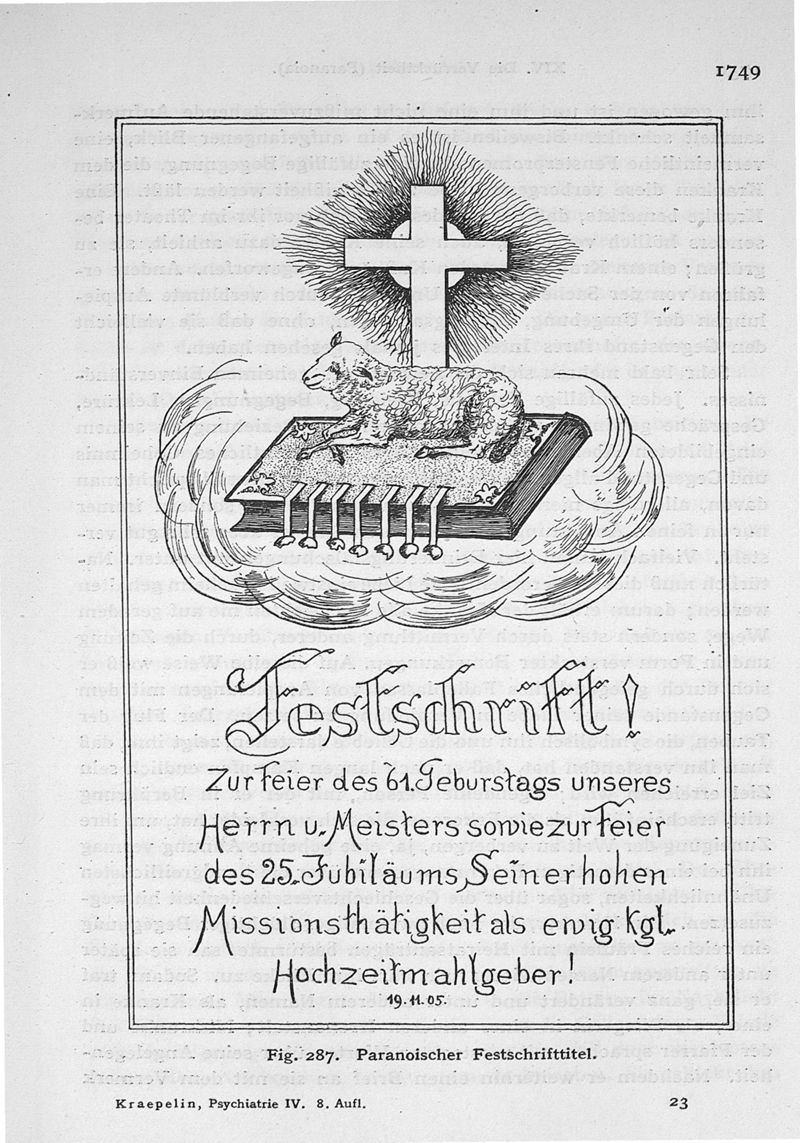 1749
Festschrift!
Zur Feier des 61. Geburstags unseres
Herrn u. Meisters sowie zur Feier
des 25. Jubiläums Seiner hohen
Missionsthätigkeit als ewig kgl.
Hochzeitmahlgeber!
19. 11. 05.
Fig. 287. Paranoischer Festschrifttitel.
Kraepelin, Psychiatrie IV. 8. Aufl.
23